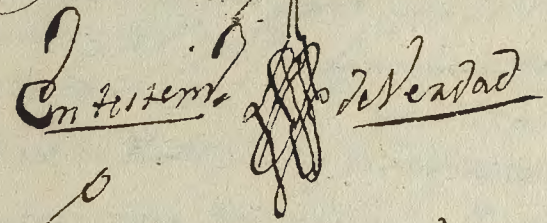 En testem.º de Verdad